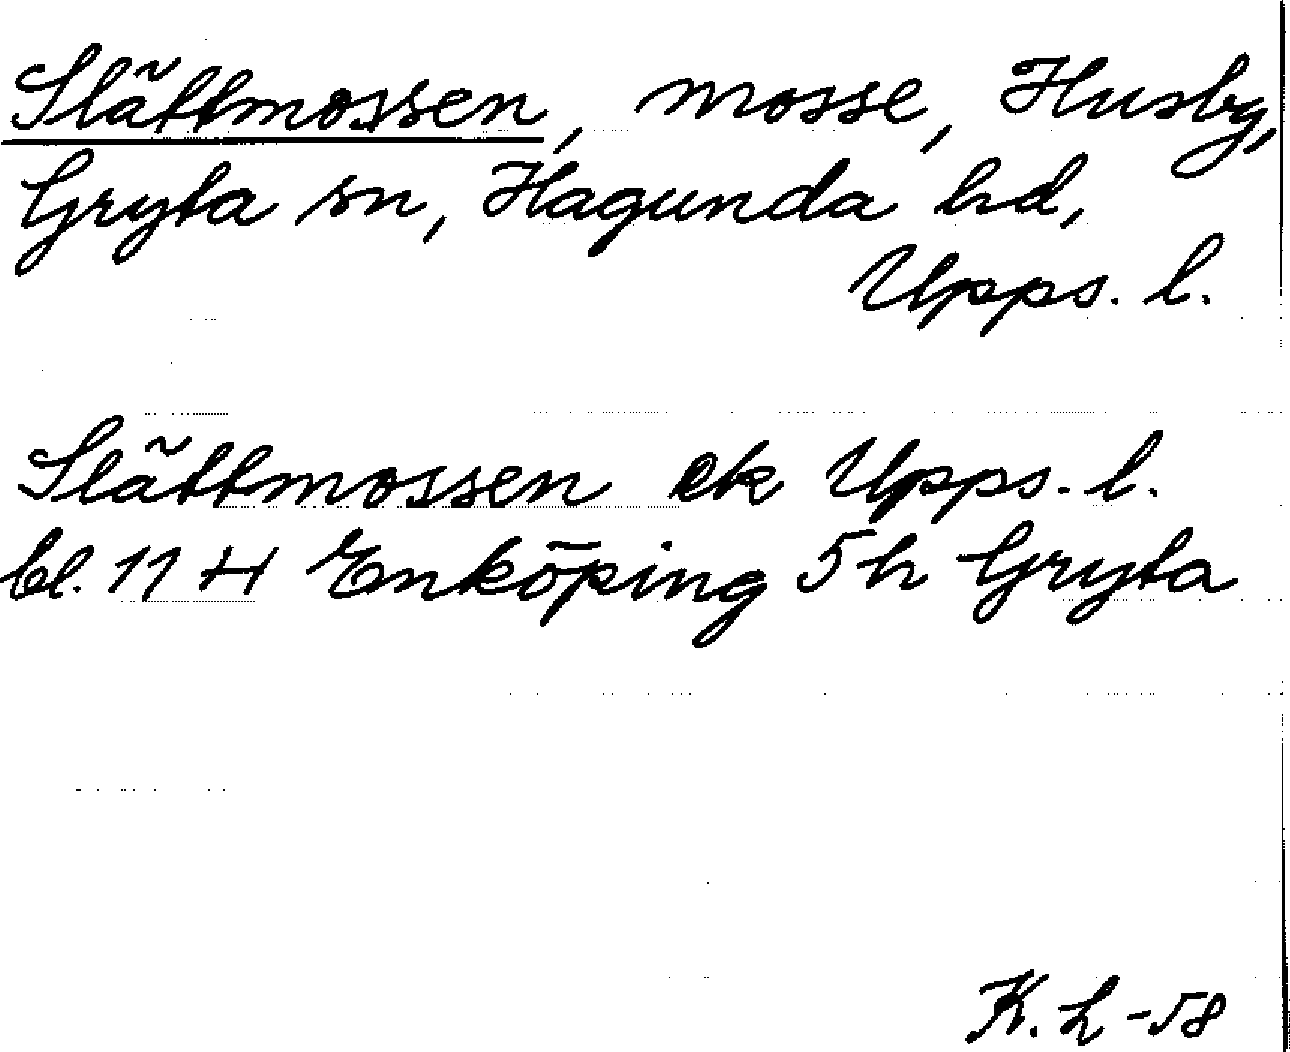 Slättmossen, mosse, Husby,
Gryta sn, Hagunda hd,
Upps. l.
Slättmossen ek Upps. l.
bl. 11 H Enköping 5h Gryta
K. L -58